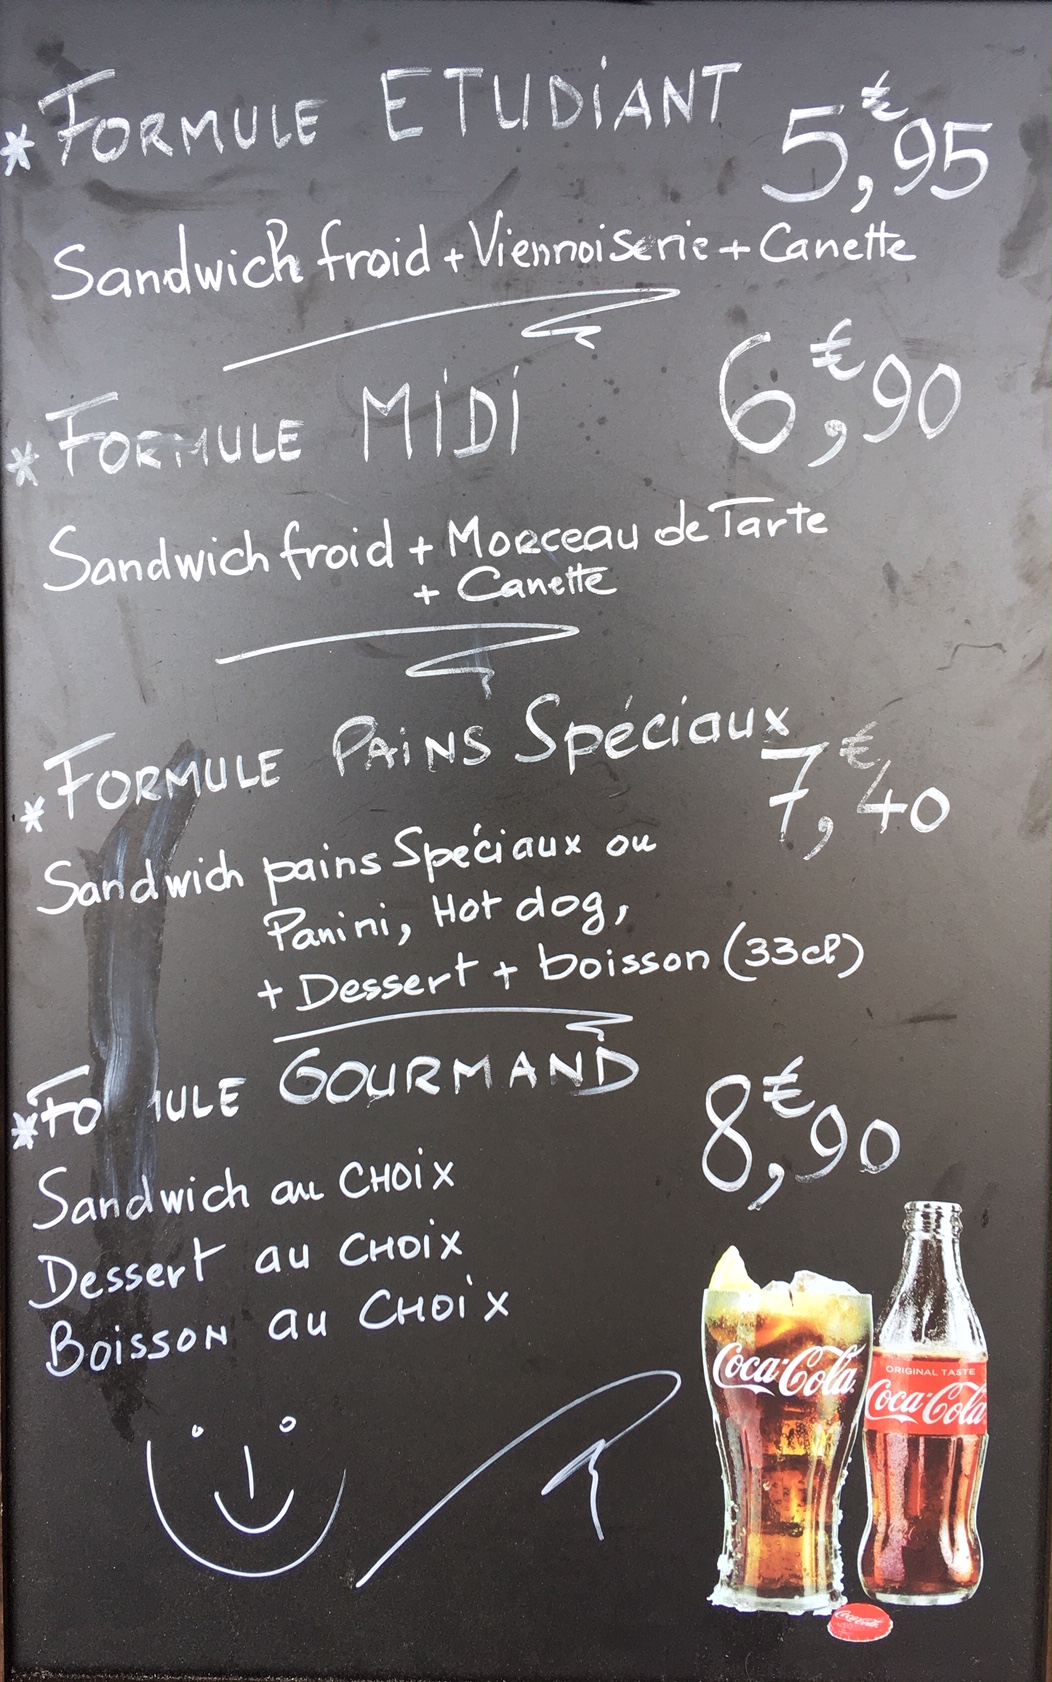 * FORMULE ETUDIANT 5,€95
Sandwich froid + Viennoiserie + Canette
* FORMULE MiDi 6,€90
Sandwich froid + Morceau de Tarte
+ Canette
* FORMULE PAiNS Spéciaux
7,€40
Sandwich pains Spéciaux ou
Panini, Hot dog,
+ Dessert + boisson (33cl)
* FO MULE GOURMAND 8,€90
Sandwich au CHOiX
Dessert au CHOiX
BoissoN au CHOiX
Coca-Cola
ORIGINAL TASTE
Coca-Cola
Coca-Cola